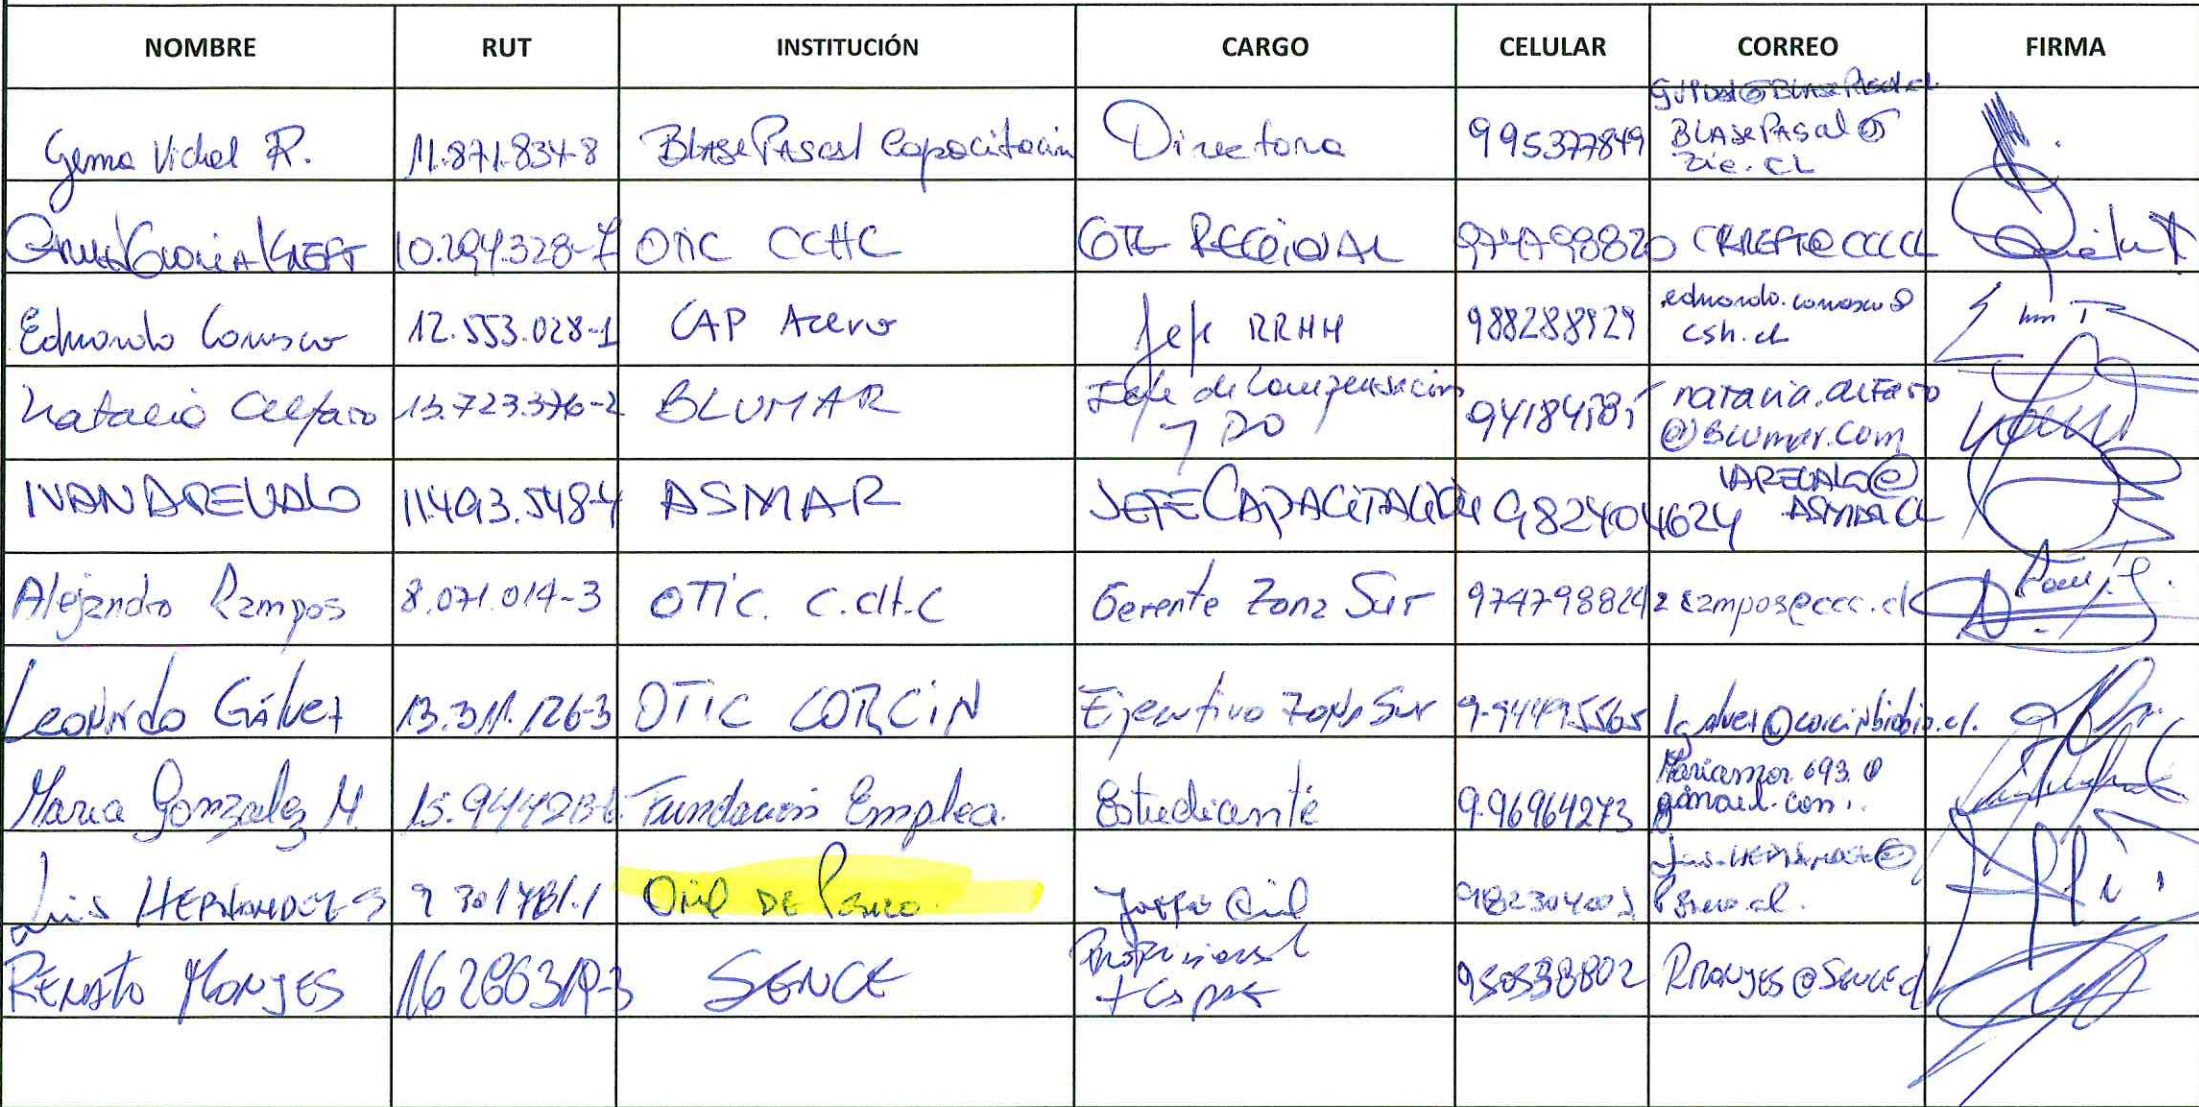 NOMBRE RUT INSTITUCIÓN CARGO CELULAR CORREO FIRMA
gvidal@BlasePascal.cl
Gema Vidal R. 11.871.834-8 Blase Pascal Capacitación Directora 995377849 BLASePAScal@
zie.cl
KREFT 10.294.328-7 OTIC CCHC GTE REGIONAL 974798820 CKREFT@CCC.CL
Eduardo Carrasco 12.553.028-1 CAP Acero Jefe RRHH 988288929 eduardo.carrasco@
csh.cl
Natalia Alfaro 13.723.376-2 BLUMAR Jefe de Compensación natalia.alfaro
y DO @BLUMAR.COM
IVAN AREVALO 11.493.548-4 ASMAR JEFE CAPACITACIÓN 982404624 IAREVALO@
ASMAR.CL
Alejandro Campos 8.071.014-3 OTIC. C.CH.C Gerente Zona Sur 974798824 acampos@ccc.cl
Leonardo Gálvez 13.311.126-3 OTIC CORCIN Ejecutivo Zona Sur 9-94495565 lgalvez@corcinbiobio.cl.
Maria Gonzalez M. Fundación Emplea. Estudiante 9.96964273 Mariamor.693.@
gmail.com.
Luis HERNANDEZ S Omil DE Penco.
RENATO MONJES SENCE Profesional 950538802 RMONJES@SENCE.cl